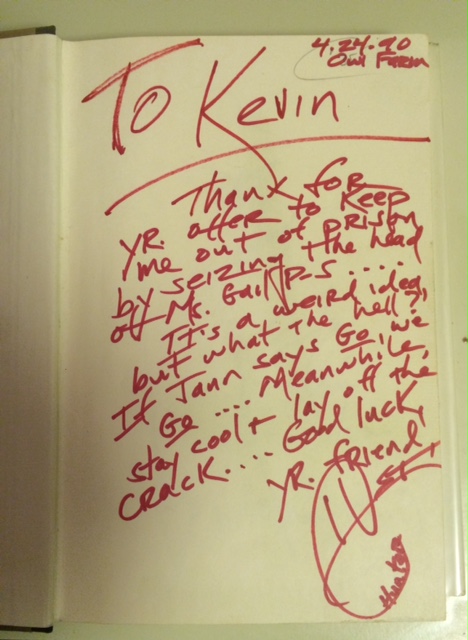 4.24.90
Owl Farm
To Kevin
Thanx for
yr. offer to keep
me out of prison
by seizing the head
off Ms. Gail P-S....
It's a weird idea,
but what the hell?
If Jann says Go, we
Go.... Meanwhile,
stay cool + lay off the
crack.... Good luck,
yr. friend,
HST
Hunter